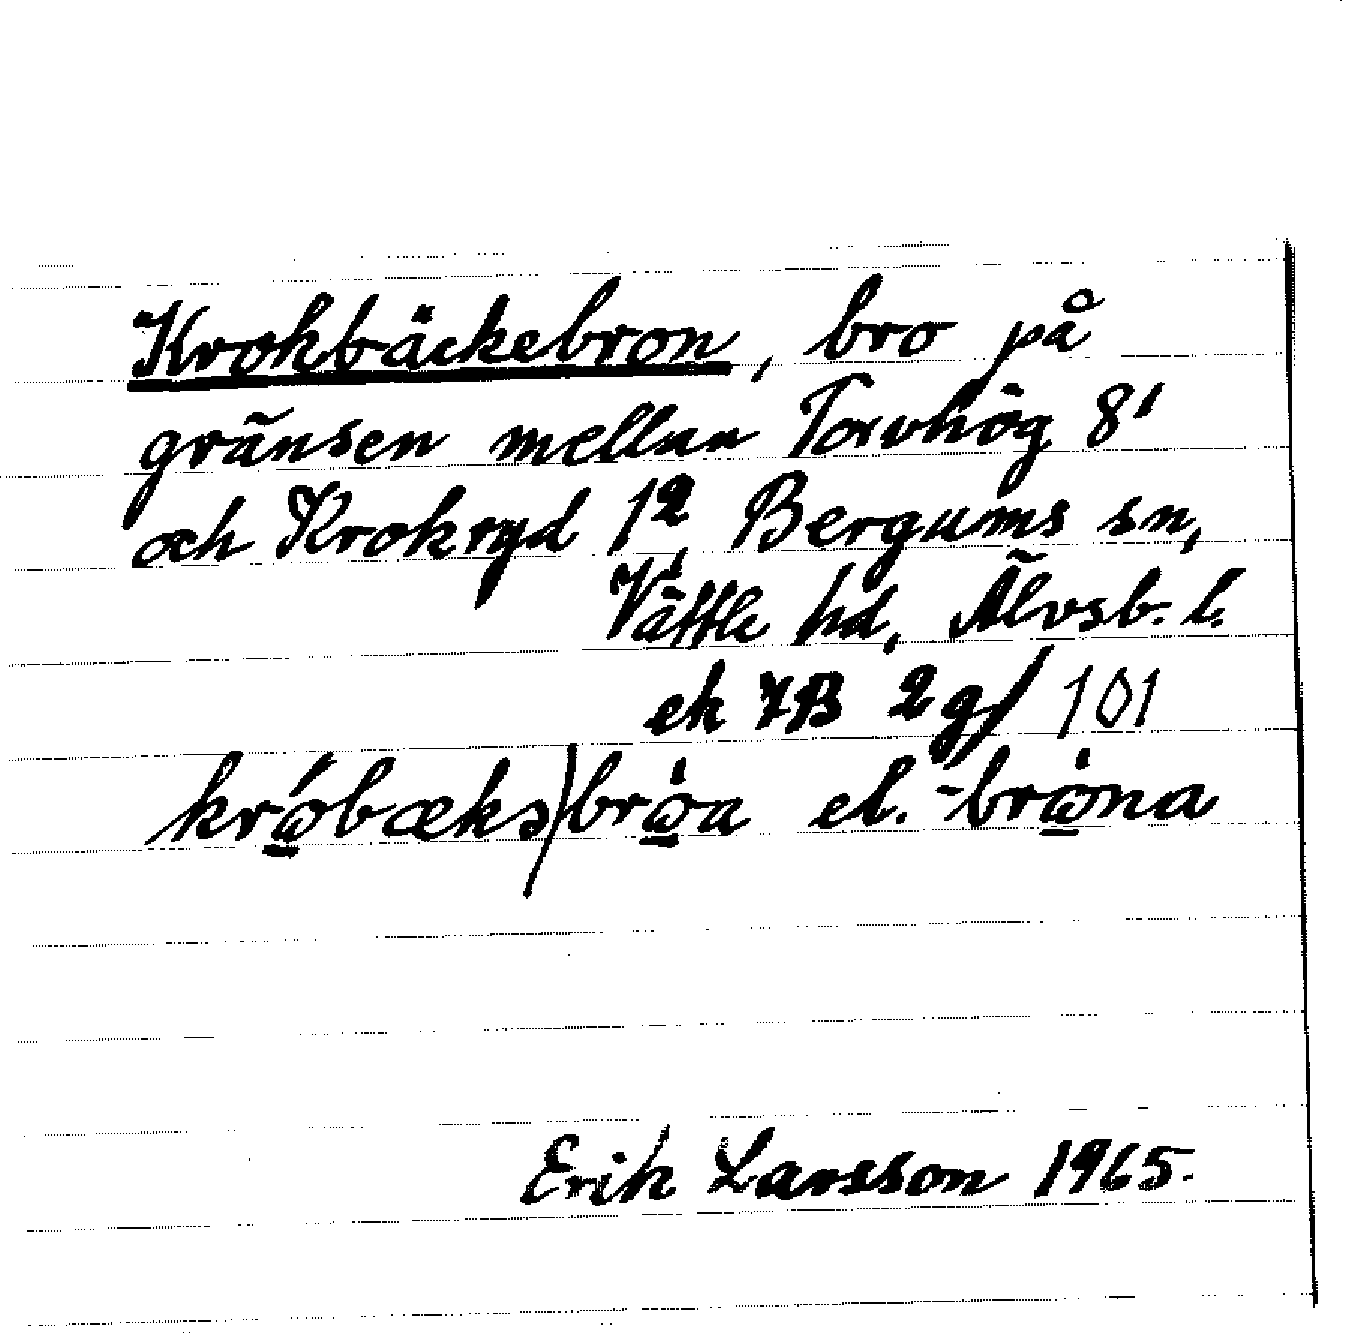 Krokbäckebron, bro på
gränsen mellan Torvhög 8¹
och Krokryd 1², Bergums sn,
Vättle hd, Älvsb. l.
ek 7B 2g/101
krώ̲bæks)brὼ̲a el. -brὼ̲na
Erik Larsson 1965.